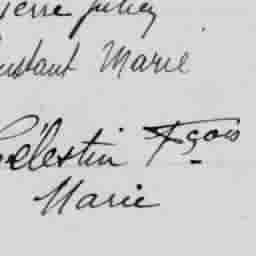 Pierre Juliey
Constant Marie
Célestin Fçois
Marie